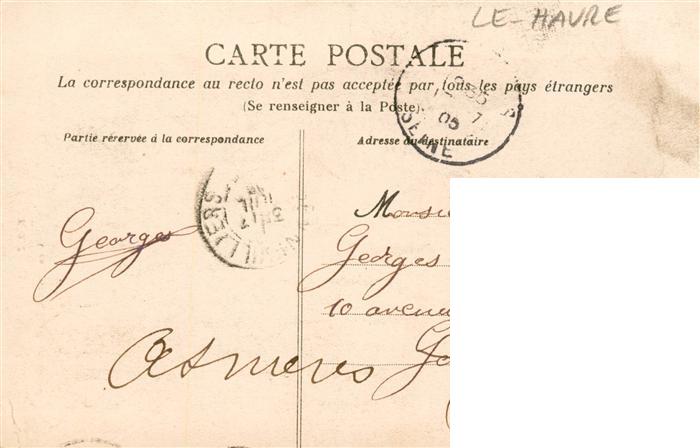 LE-HAVRE
CARTE POSTALE
La correspondance au recto n'est pas acceptée par tous les pays étrangers
(Se renseigner à la Poste)
Partie réservée à la correspondance
Adresse du destinataire
05
SEINE
Georges
Georges
10
Asnieres